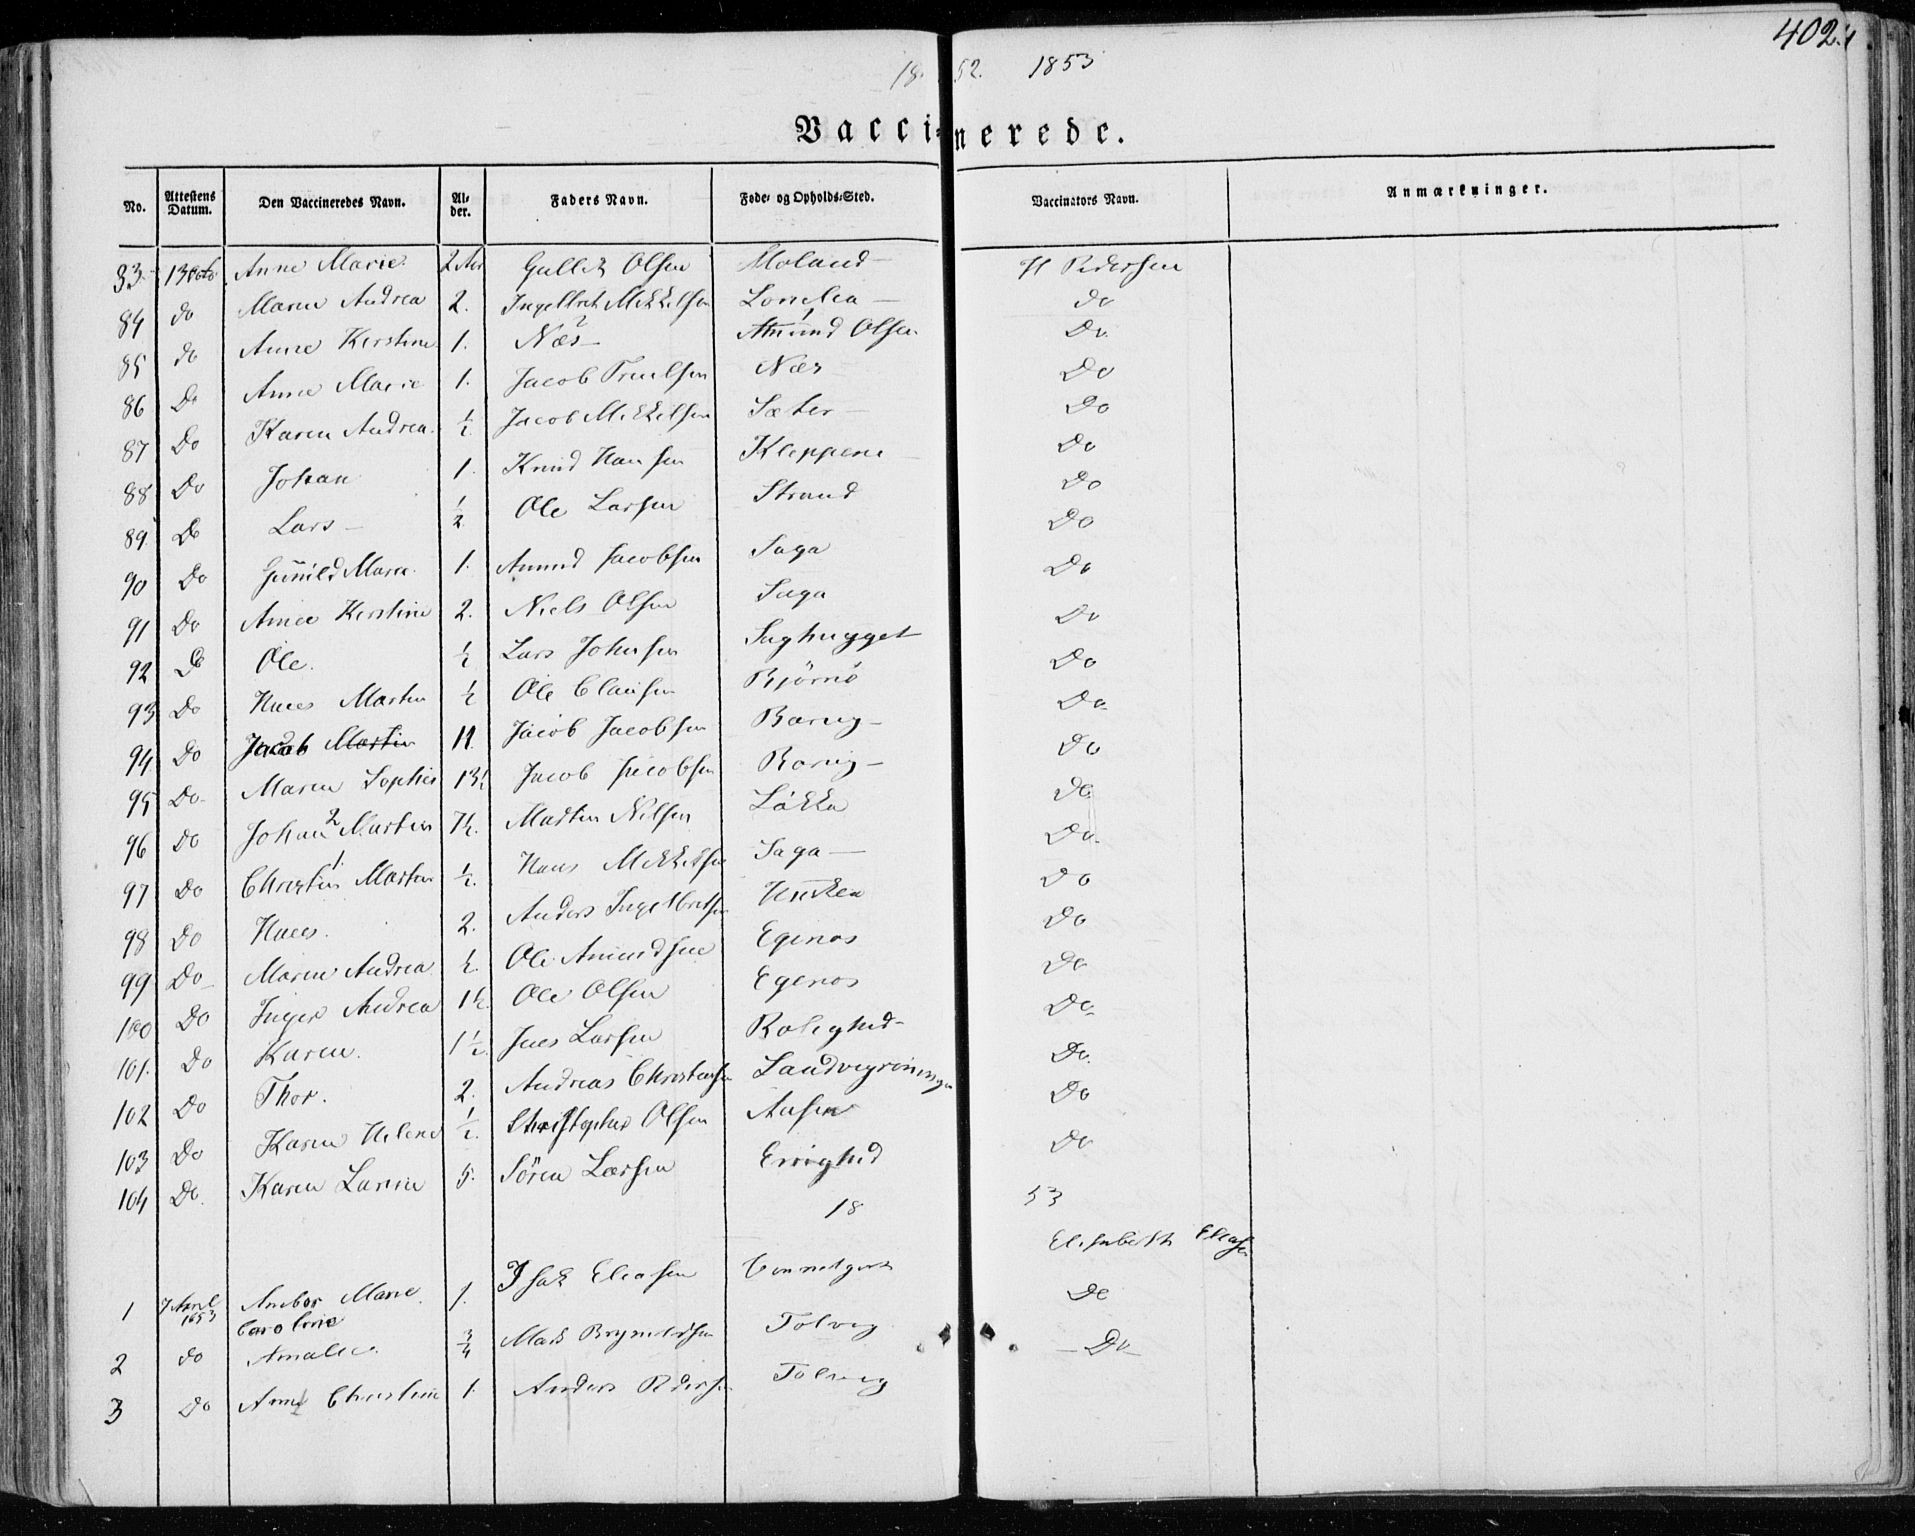 402.
18 52. 1853
Vaccinerede.
No. Attestens Datum. Den Vaccineredes Navn. Alder. Faders Navn. Føde- og Opholds-Sted. Vaccinators Navn. Anmærkninger.
83. 13 Octo Anne Marie. 2 Aar Gullik Olsen Moland - H Pedersen
84 do Maren Andrea 2. Ingelbret Mikkelsen - do
85 do Anne Kirstine 1. Næs - 2 Amund Olsen 1 Do.
86 Do Anne Marie 1. Jacob Truelsen Næs Do
87 Do Karen Andrea. ½ Jacob Mikkelsen Sæter - Do
88 Do Johan 1. Knud Hansen Kleppene - Do
89. Do Lars - ½ Ole Larsen Strand Do
90 Do Gunild Marie. 1. Amund Jacobsen Saga Do
91 Do Anne Kirstine 2. Niels Olsen Saga Do
92 Do Ole. ½ Lars Johnsen Saghugget Do
93 Do Hans Martin ½ Ole Clausen Bjørnø Do
94 Do Jacob Martin 11. Jacob Jacobsen Do.
95 Do- Maren Sophie 13½ Jacob Jacobsen Do
96 Do Johan 2 Martin 7½. Martin Nilsen Løkka Do
97 Do Christen 1. Martin ½. Hans Mikkelsen Saga - Do.
98 Do Hans. 2. Anders Ingelbretsen Do
99 Do- Maren Andrea ½ Ole Amundsen Egenes Do
100 Do Inger Andrea 1½. Ole Olsen Egenes Do
101. Do Karen. 1½. Jens Larsen Rolighed- Do-
102 Do Thor. 2. Andreas Christensen Do.
103 Do Karen Helene ½. Christopher Olsen Aasen Do
104 Do. Karen Lavine 5. Sören Larsen Do
18 53
1 7 April 1853 Anebor Marie 1. Isak Eleasen Elisabeth Eleasen
2 do Caroline Amalie. ¾ Mads Brynildsen Tolvig De
3 Do Anne Christine 1. Anders Pedersen Tolvig - Do -